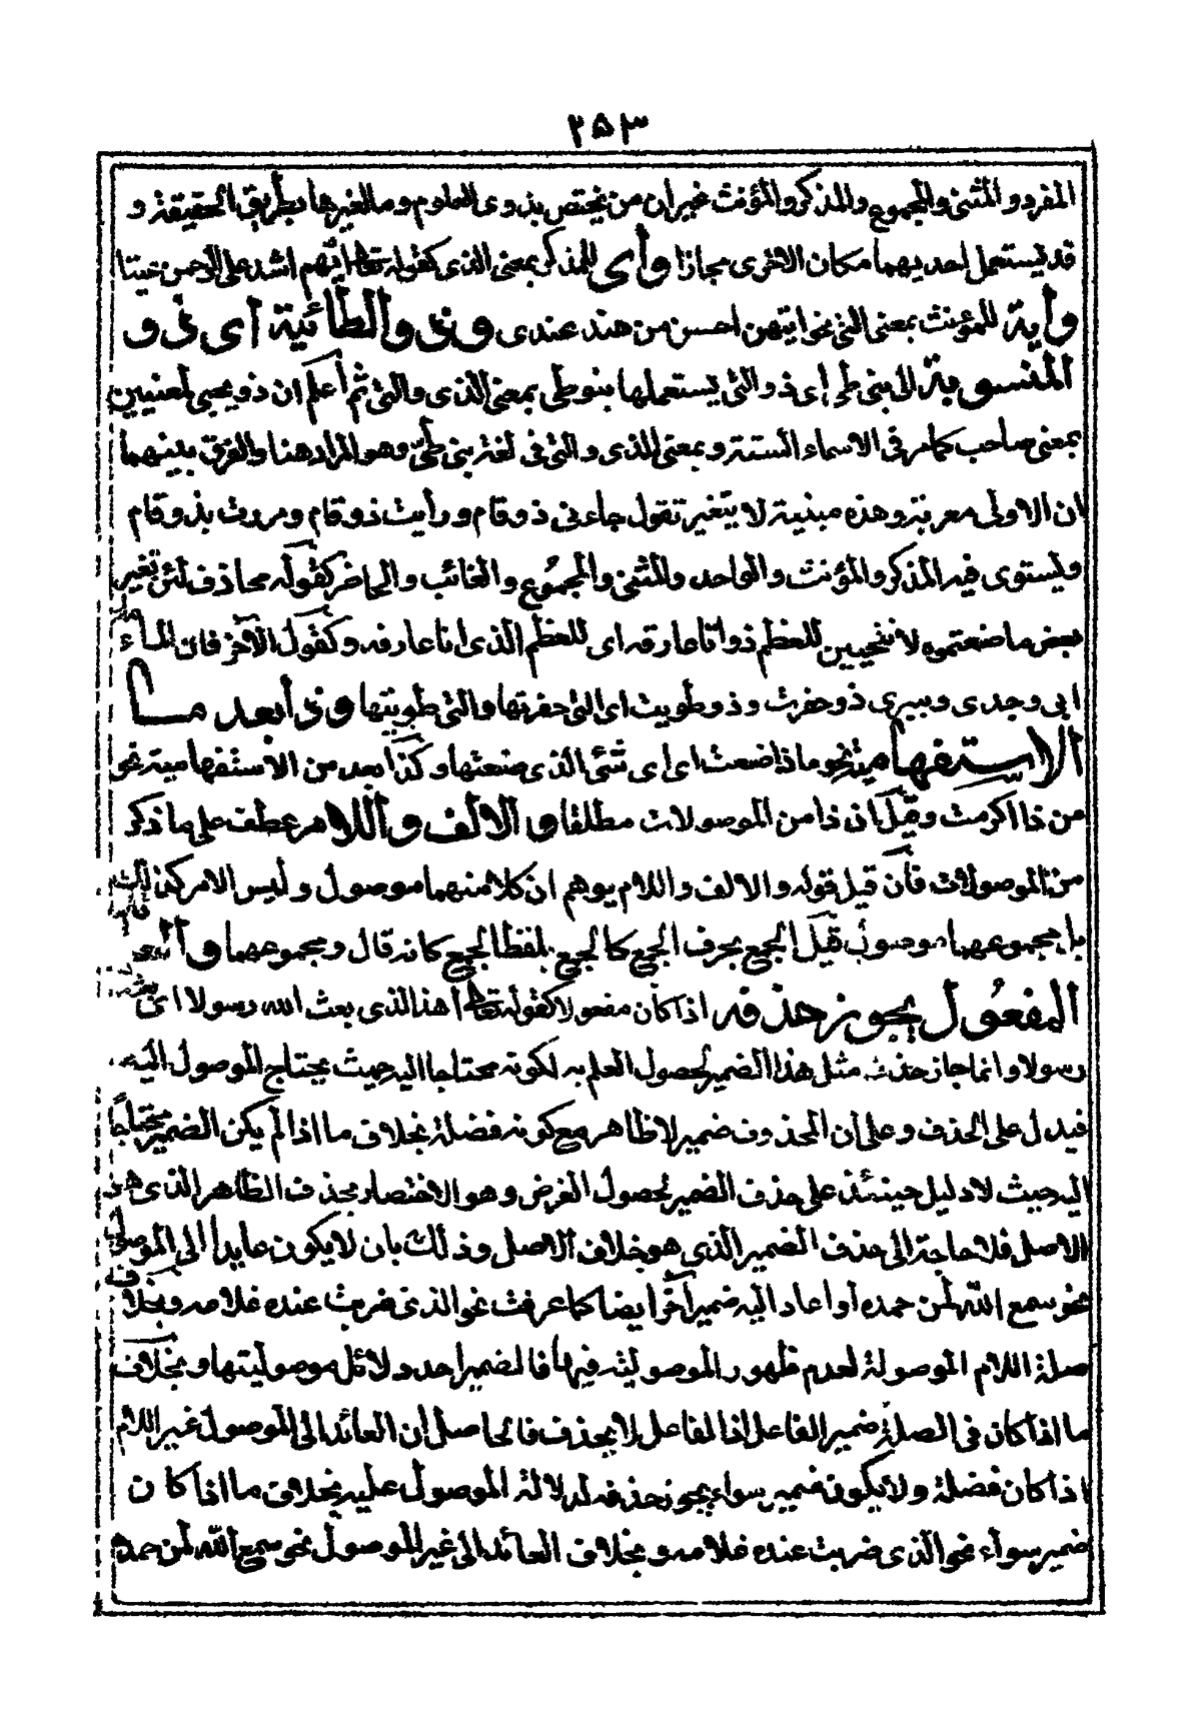 ٢٥٣
المفرد والمثنى والمجموع والمذكر والمؤنث غير ان من يختص بذوى العلوم وما لغيرها بطريق الحقيقة و
قد يستعمل احديهما مكان الاخرى مجازا وأى للمذكر بمعنى الذى كقوله تعالى ايهم اشد على الرحمن عتيا
وأية للمؤنث بمعنى التى نحو ايتهن احسن من هند عندى وذو الطائية اى فى و
المنسوبة لابنى طى اى ذو التى يستعملها بنو طى بمعنى الذى والتى ثم أعلم ان ذو يجيى لمعنيين
بمعنى صاحب كما مر فى الاسماء الستة وبمعنى الذى والتى فى لغة بنى طىّ وهو المراد هنا والفرق بينهما
ان الاولى معربة وهذه مبنية لا يتغير تقول جاءنى ذو قام ورأيت ذو قام ومررت بذو قام
ويستوى فيه المذكر والمؤنث والواحد والمثنى والمجموع والغائب والحاضر كقوله محاذف لئن تغير
بعض ما صنعتموه لانتحيين للعظم ذو انا عارقه اى للعظم الذى انا عارقه وكقول الآخر فان الماء ماء
ابى وجدى وبيرى ذو حفرت وذو طويت اى التى حفرتها والتى طويتها وذا بعد ما
الاستفهامية نحو ماذا صنعت اى اى شئ الذى صنعتها وكذا بعد من الاستفهامية نحو
من ذا اكرمت وقيل ان ذا من الموصولات مطلقا والالف واللام عطف على ما ذكر
من الموصولات فان قيل قوله والالف واللام يوهم ان كلا منهما موصول وليس الامر كذلك
بل مجموعهما موصول قيل الجمع بحرف الجمع كالجمع بلفظ الجمع كانه قال ومجموعهما والعائد
المفعول يجوز حذفه اذا كان مفعولا كقوله تعالى أهذا الذى بعث الله رسولا اى بعثه
رسولا وانما جاز حذف مثل هذا الضمير لحصول العلم به لكونه محتاجا اليه حيث يحتاج الموصول اليه
فيدل على الحذف وعلى ان المحذوف ضمير لا ظاهر مع كونه فضلة بخلاف ما اذا لم يكن الضمير محتاجا
اليه حيث لا دليل حينئذ على حذف الضمير لحصول الغرض وهو الاختصار بحذف الظاهر الذى هو
الاصل فلا حاجة الى حذف الضمير الذى هو خلاف الاصل وذلك بان لا يكون عايدا الى الموصول
نحو سمع الله لمن حمده أو اعاد اليه ضمير آخر ايضا كما عرفت نحو الذى ضربت عنده غلامه وبخلاف
صلة اللام الموصولة لعدم ظهور الموصولية فيها فالضمير احد دلائل موصوليتها وبخلاف
ما اذا كان فى الصلة ضمير الفاعل اذ الفاعل لا يحذف فالحاصل ان العائد الى الموصول غير اللام
اذا كان فضلة ولا يكون ضمير سواه يجوز حذفه لدلالة الموصول عليه بخلاف ما اذا كان
ضمير سواه نحو الذى ضربت عنده غلامه وبخلاف العائد الى غير الموصول نحو سمع الله لمن حمده